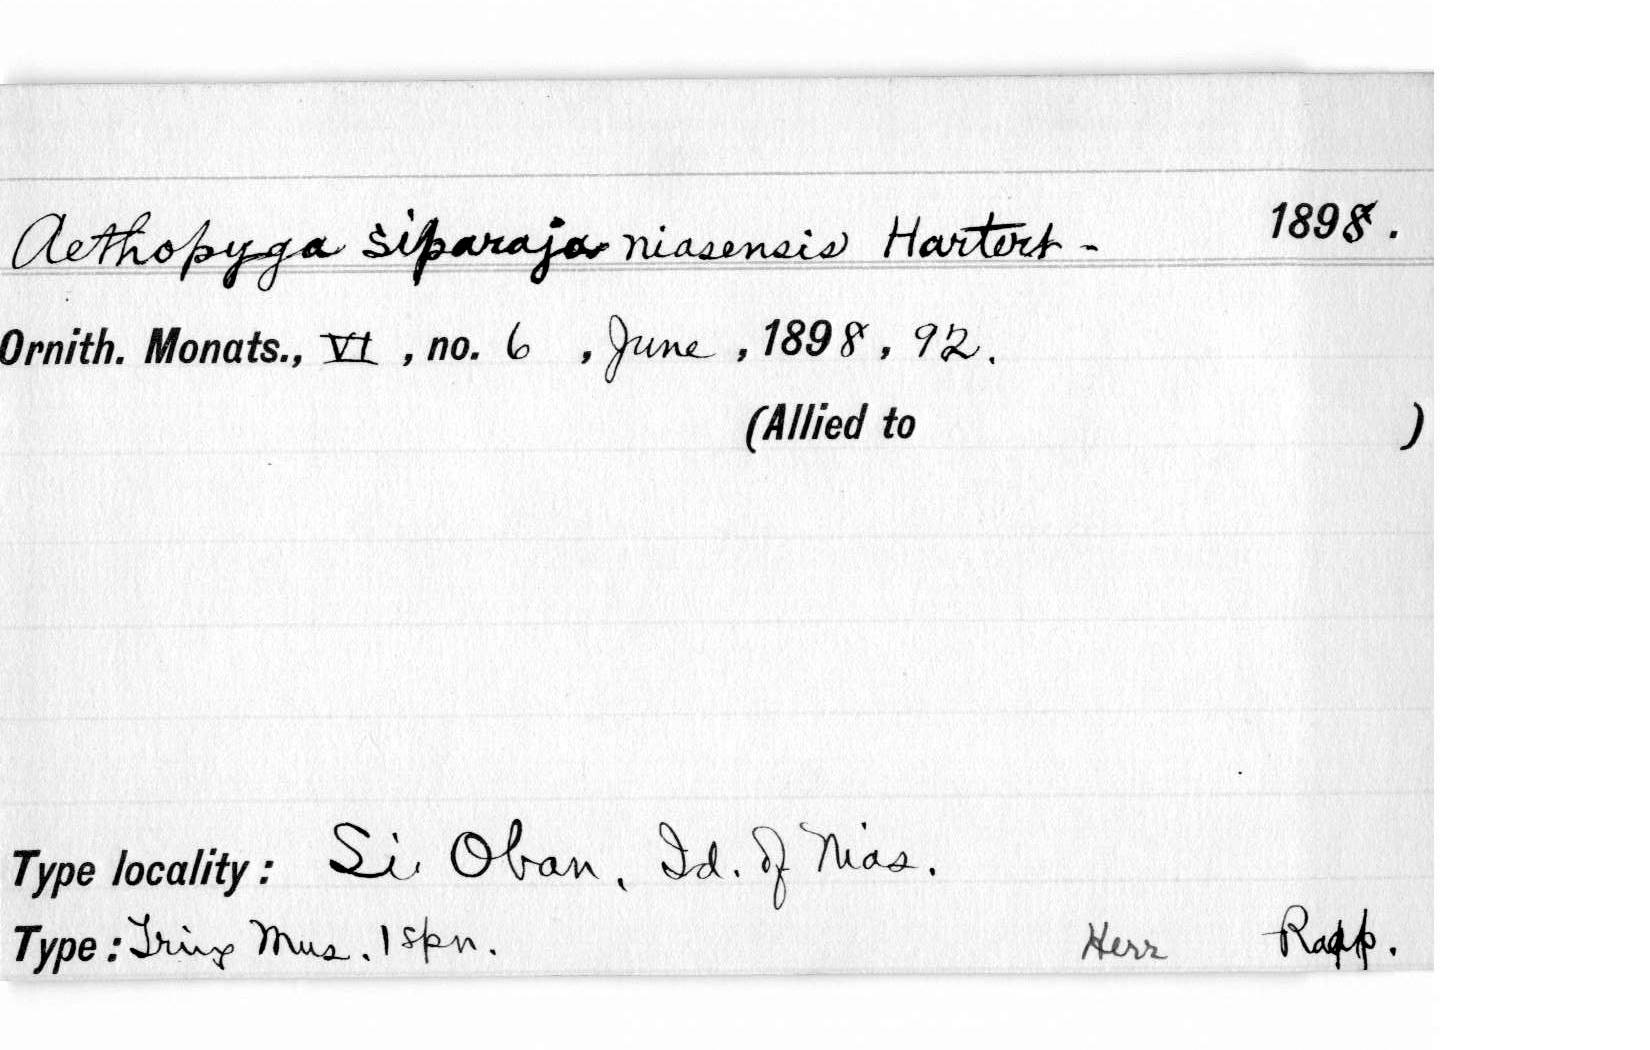 Aethopyga siparaja niasensis Hartert - 1898.
Ornith. Monats., VI, no. 6, June, 1898, 92.
(Allied to )
Type locality: Si Oban, Id. of Nias.
Type: Tring Mus. 1 spn. Herr Rapp.